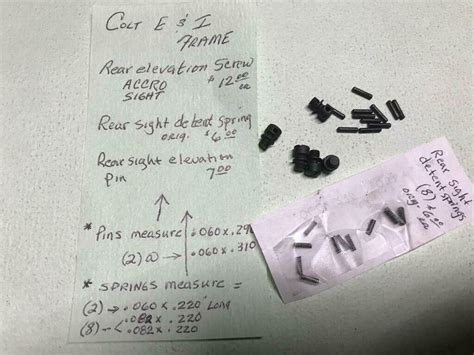 COLT E & I
FRAME
Rear elevation Screw
ACCRO $12.00
SIGHT ea
Rear Sight detent spring
ORIG. $6.00
Rear sight elevation
Pin 7.00
* Pins measure .060 x .29
(2) @ → .060 x .310
* SPRINGS measure =
(2) → .060 x .220" Long
(8) - < .082 x .220
.082 x .220
Rear Sight
detent springs
(8) $6.00
ORIG. ea